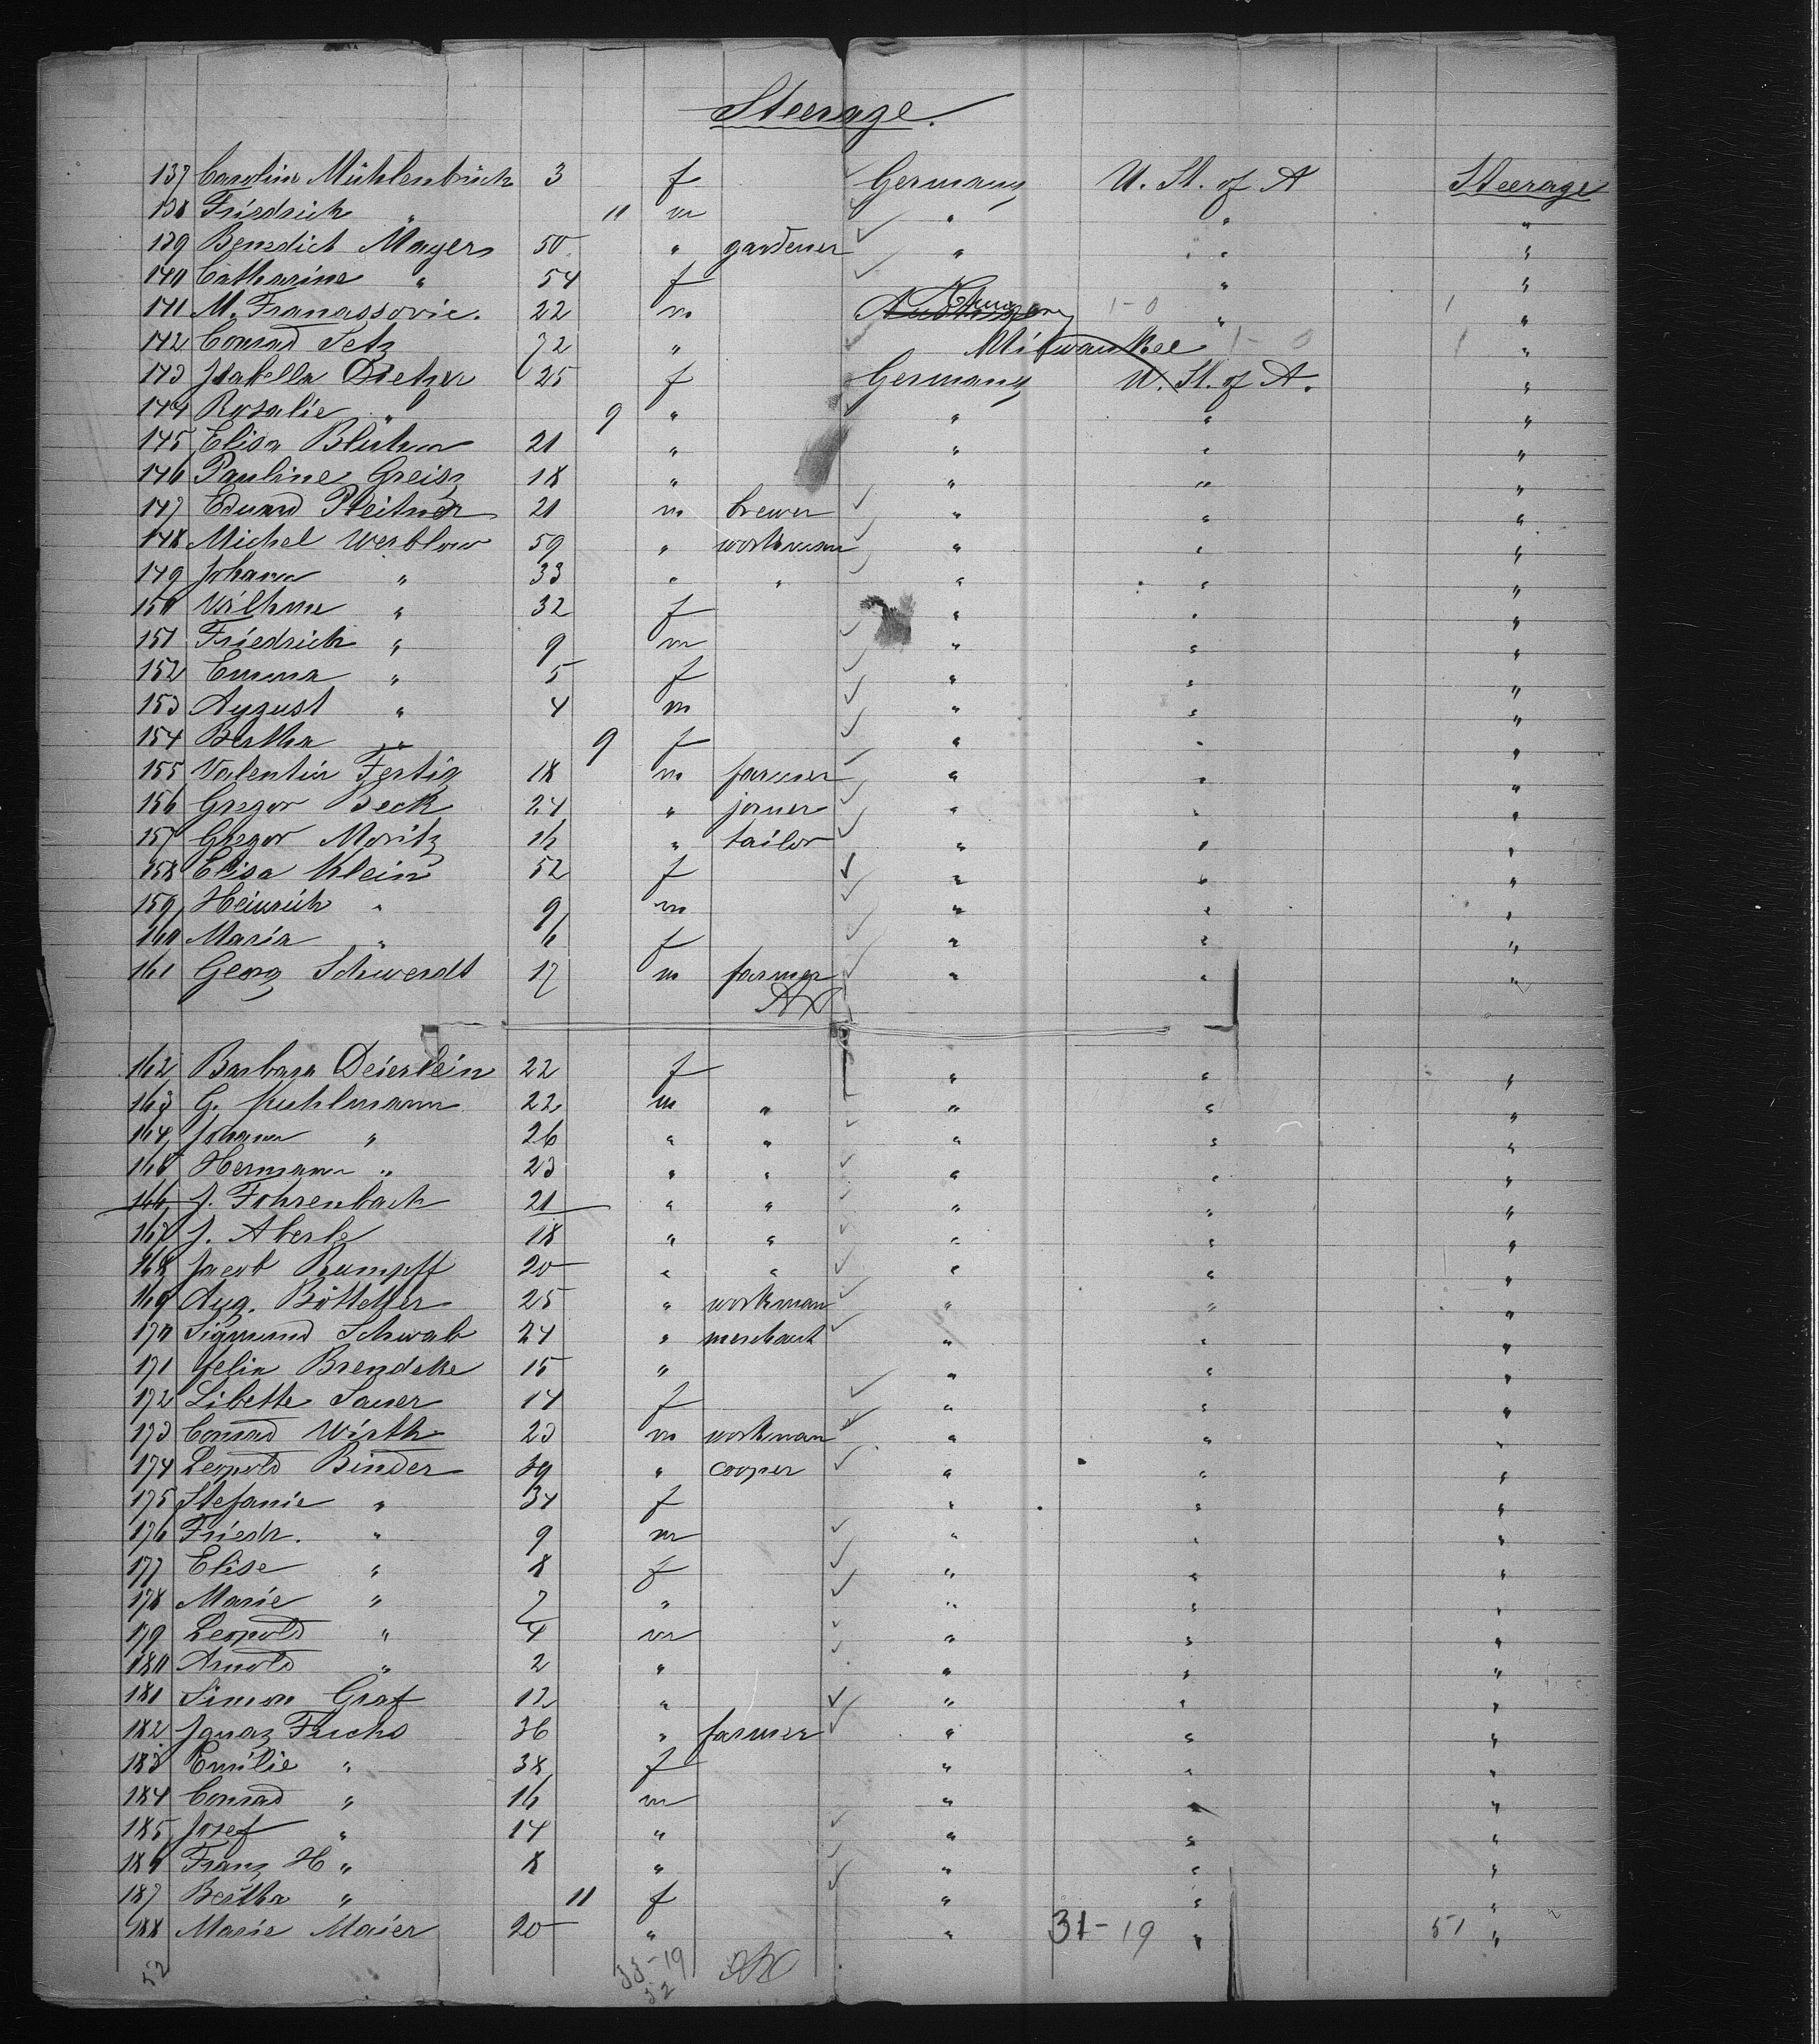 Steerage.
137 Carolin Mühlenbrich 3 f Germany U. St. of A Steerage
138 Friedrich " 11 m " " "
139 Benedict Mayer 50 " gardener " " "
140 Catharine " 54 f " "
141 M. Franassovic. 22 m 1-0 " 1 "
142 Conrad Setz 72 " Milwaukee 1-0 1 "
143 Isabella Dietzer 25 f Germany U. St. of A. "
144 Rosalie " 9 " " " "
145 Elisa Blühm 21 " " " "
146 Pauline Greis 18 " " " "
147 Eduard Pleitner 21 m brewer " " "
148 Michel Werblow 59 " workman " " "
149 Johann " 33 " " " " "
150 Wilhme " 32 f " " "
151 Friedrich " 9 m " " "
152 Emma " 5 f " " "
153 August " 4 m " " "
154 Bertha " 9 f " " "
155 Valentin Fertig 18 m farmer " " "
156 Gregor Beck 24 " joiner " " "
157 Gregor Moritz 16 " tailor " " "
158 Elisa Klein 52 f " " "
159 Heinrich " 9 m " " "
160 Maria " 6 f " " "
161 Georg Schwerdt 17 m farmer " " "
162 Barbara Deierlein 22 f " " "
163 G. Kuhlmann 22 m " " " "
164 Johann " 26 " " " " "
165 Hermann " 23 " " " " "
166 J. Fohrenbach 21 " " " " "
167 J. Aberle 18 " " " " "
168 Jacob Rumpff 20 " " " " "
169 Aug. Böttcher 25 " workman " " "
170 Sigmund Schwab 24 " merchant " " "
171 Felix Brendeke 15 " " " "
172 Libette Sauer 14 f " " "
173 Conrad Wirth 23 m workman " " "
174 Leopold Binder 39 " cooper " " "
175 Stefanie " 34 f " " "
176 Friedr. " 9 m " " "
177 Elise " 8 f " " "
178 Marie " 7 " " " "
179 Leopold " 4 m " " "
180 Arnold " 2 " " " "
181 Simon Graf 12 " " " "
182 Ignaz Fuchs 36 " farmer " " "
183 Emilie " 38 f " " "
184 Conrad " 16 m " " "
185 Josef " 14 " " " "
186 Franz H " 8 " " " "
187 Bertha " 11 f " " "
188 Marie Maier 20 " " 31-19 " 51 "
52 33-19
52